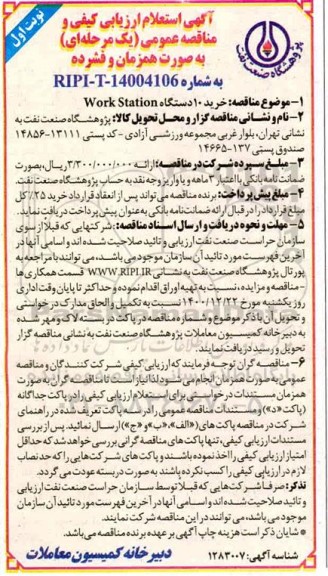 نوبت اول
آگهی استعلام ارزیابی کیفی و
مناقصه عمومی (یک مرحله‌ای)
به صورت همزمان و فشرده
پژوهشگاه صنعت نفت
به شماره RIPI-T-14004106
۱- موضوع مناقصه: خرید ۱۰ دستگاه Work Station
۲- نام و نشانی مناقصه گزار و محل تحویل کالا: پژوهشگاه صنعت نفت به
نشانی تهران، بلوار غربی مجموعه ورزشی آزادی - کد پستی ۱۳۱۱۱-۱۴۸۵۶
صندوق پستی ۱۳۷-۱۴۶۶۵
۳- مبلغ سپرده شرکت در مناقصه: ارائه ۳/۳۰۰/۰۰۰/۰۰۰ ریال، بصورت
ضمانت نامه بانکی با اعتبار ۳ ماهه و یا واریز وجه نقد به حساب پژوهشگاه صنعت نفت.
۴- مبلغ پیش پرداخت: برنده مناقصه می‌تواند پس از انعقاد قرارداد خرید ۲۵٪ کل
مبلغ قرارداد را در قبال ارائه ضمانت‌نامه بانکی به عنوان پیش پرداخت دریافت نماید.
۵- مهلت و نحوه دریافت و ارسال اسناد مناقصه: شرکتهایی که قبلا از سوی
سازمان حراست صنعت نفت ارزیابی و تائید صلاحیت شده اند و اسامی آنها در
آخرین فهرست مورد تائید آن سازمان موجود می باشد، می‌توانند با مراجعه به
پورتال پژوهشگاه صنعت نفت به نشانی WWW.RIPI.IR قسمت همکاری‌ها
- مناقصه و مزایده، نسبت به تهیه اوراق اقدام نموده و حداکثر تا پایان وقت اداری
روز یکشنبه مورخ ۱۴۰۰/۱۲/۲۲ نسبت به تکمیل و الحاق مدارک درخواستی
و تحویل آن با ذکر موضوع و شماره مناقصه در پاکت در بسته لاک و مهر شده
به دبیرخانه کمیسیون معاملات پژوهشگاه صنعت نفت به نشانی مناقصه گزار
تحویل و رسید دریافت نمایند.
۶- مناقصه گران توجه فرمایند که ارزیابی کیفی شرکت کنندگان و مناقصه
عمومی به صورت همزمان انجام می‌شود لذا نیاز است تا مناقصه گران به صورت
همزمان مستندات درخواستی برای استعلام ارزیابی کیفی را در پاکت جداگانه
(پاکت «د») و مستندات مناقصه عمومی را در سه پاکت تعریف شده در راهنمای
شرکت در مناقصه پاکت های («الف»، «ب» و «ج») ارسال نمائید. پس از بررسی
مستندات ارزیابی کیفی، تنها پاکت های مناقصه گرانی بررسی خواهد شد که حداقل
امتیاز ارزیابی کیفی را اخذ نموده باشند و پاکت های شرکت هایی را که حد نصاب
لازم در ارزیابی کیفی را کسب نکرده باشند به صورت دربسته عودت می گردد.
تذکر: صرفا شرکت هایی که قبلا توسط سازمان حراست صنعت نفت ارزیابی
و تائید صلاحیت شده اند و اسامی آنها در آخرین فهرست مورد تائید آن سازمان
موجود می باشد، می توانند در این مناقصه شرکت نمایند.
* شایان ذکر است هزینه چاپ آگهی بر عهده برنده مناقصه می‌باشد.
شناسه آگهی: ۱۲۸۳۰۰۷
دبیرخانه کمیسیون معاملات